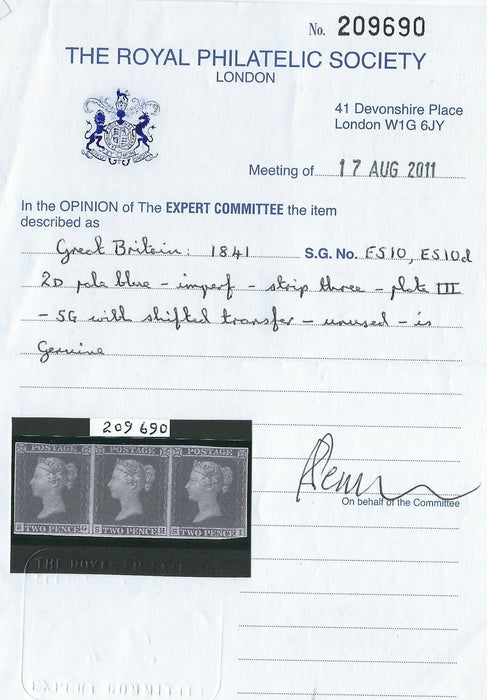 No. 209690
THE ROYAL PHILATELIC SOCIETY
LONDON
41 Devonshire Place
London W1G 6JY
Meeting of 17 AUG 2011
In the OPINION of The EXPERT COMMITTEE the item
described as
Great Britain: 1841 S.G. No. ES10, ES10d
2D pale blue - imperf - strip three - plate III
- SG with shifted transfer - unused - is
Genuine
209 690
POSTAGE POSTAGE POSTAGE
S TWO PENCE G S TWO PENCE H S TWO PENCE I
On behalf of the Committee
THE ROYAL
EXPERT COMMITTEE